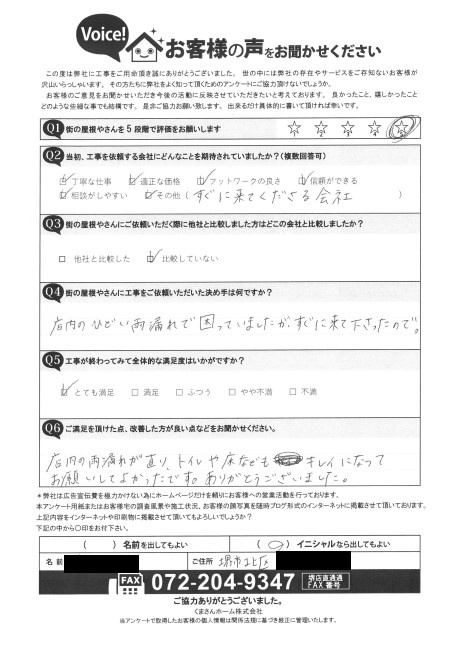 Voice!
お客様の声をお聞かせください
この度は弊社に工事をご用命頂き誠にありがとうございました。 世の中には弊社の存在やサービスをご存知ないお客様が
沢山いらっしゃいます。その方たちに弊社をよく知って頂くためのアンケートにご協力頂けないでしょうか。
お客様のご意見をお聞かせいただき今後の活動に反映させていただきたいと考えております。良かったこと、嬉しかったこと
どのような些細な事でも結構です。 是非ご協力お願い致します。 出来るだけ具体的に書いて頂ければ幸いです。
Q1 街の屋根やさんを5段階で評価をお願いします
☆ ☆ ☆ ☆ ☆
Q2 当初、工事を依頼する会社にどんなことを期待されていましたか？(複数回答可)
☑丁寧な仕事 ☑適正な価格 ☑フットワークの良さ ☑信頼ができる
☑相談がしやすい ☑その他 ( すぐに来てくださる会社 )
Q3 街の屋根やさんにご依頼いただく際に他社と比較しました方はどこの会社と比較しましたか？
□ 他社と比較した ☑ 比較していない
Q4 街の屋根やさんに工事をご依頼いただいた決め手は何ですか？
店内のひどい雨漏れで困っていましたが、すぐに来て下さったので。
Q5 工事が終わってみて全体的な満足度はいかがですか？
☑とても満足 □ 満足 □ ふつう □ やや不満 □ 不満
Q6 ご満足を頂けた点、改善した方が良い点などをお聞かせください。
店内の雨漏れが直り、トイレや床なども キレイになって
お願いしてよかったです。ありがとうございました。
＊弊社は広告宣伝費を極力かけない為にホームページだけを頼りにお客様への営業活動を行っております。
本アンケート用紙またはお客様宅の調査風景や施工状況、お客様の顔写真を随時ブログ形式のインターネットに掲載させて頂いております。
上記内容をインターネットや印刷物に掲載させて頂いてもよろしいでしょうか？
下記の中から〇印をお付下さい。
( ) 名前を出してもよい ( ○ ) イニシャルなら出してもよい
名 前 ご住所 堺市北区
FAX 072-204-9347 堺店直通通 FAX番号
ご協力ありがとうございました。
くまさんホーム株式会社
当アンケートで取得したお客様の個人情報は関係法規に基づき厳正に管理いたします。